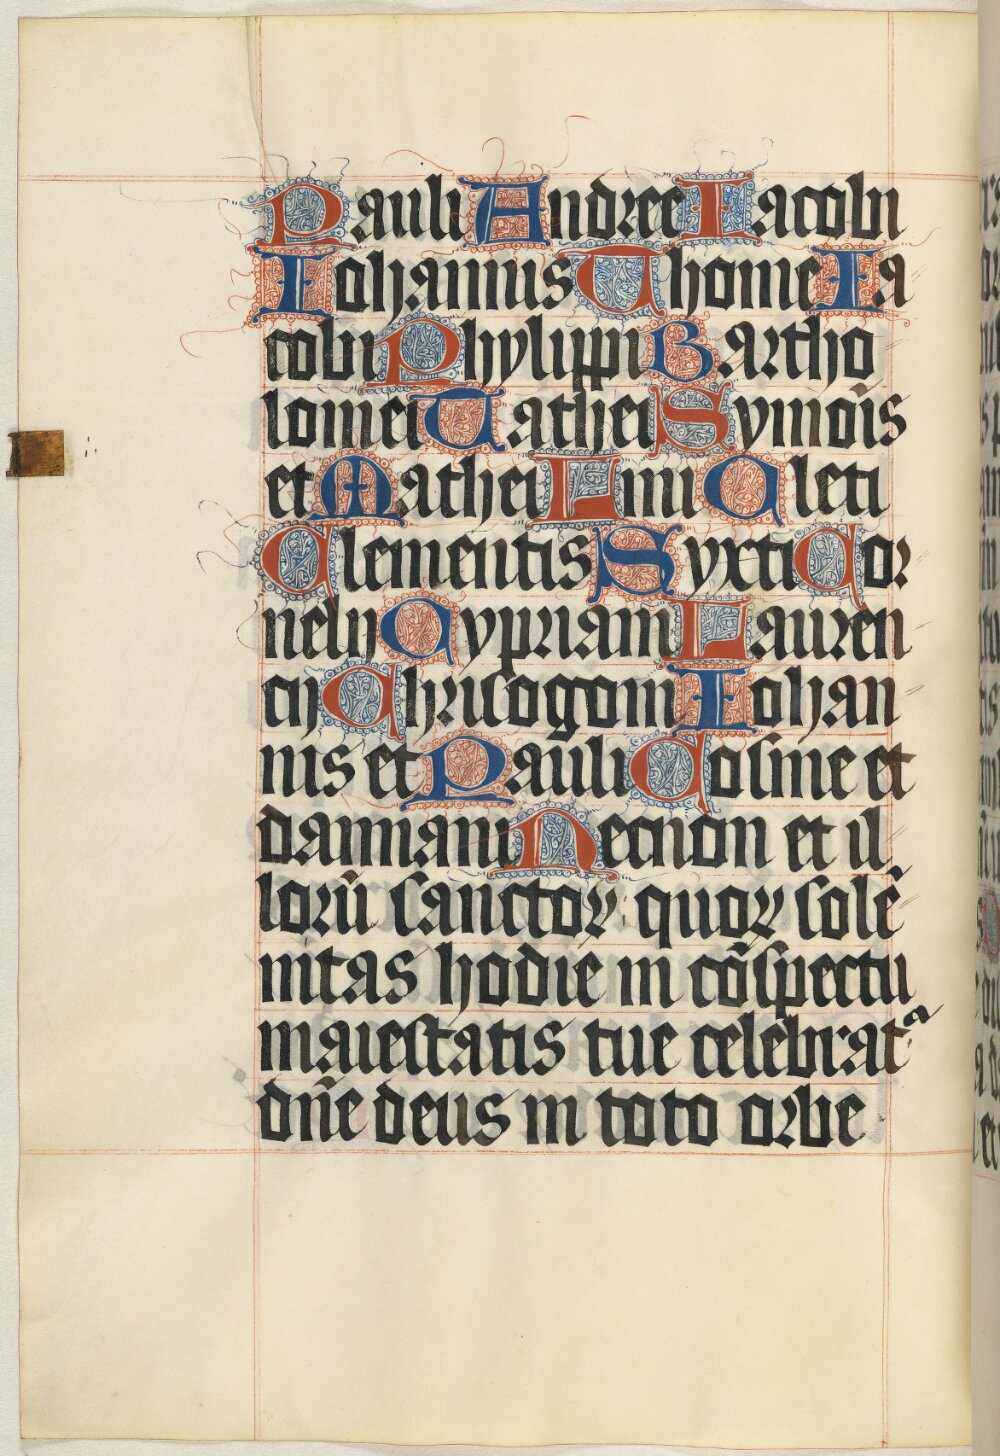 Pauli Andree Iacobi
Iohannis Thome Ia
cobi Phylippi Bartho
lomei Tathei Symōis
et Mathei Lini Cleti
Clementis Syxti Cor
nelij Cypriani Lauren
cij Chrisogoni Iohan
nis et Pauli Cosme et
damiani Necnon et il
lorū sanctoꝝ quoꝝ solē
nitas hodie in cōspectu
maiestatis tue celebratᵃ
dn̄e deus in toto orbe